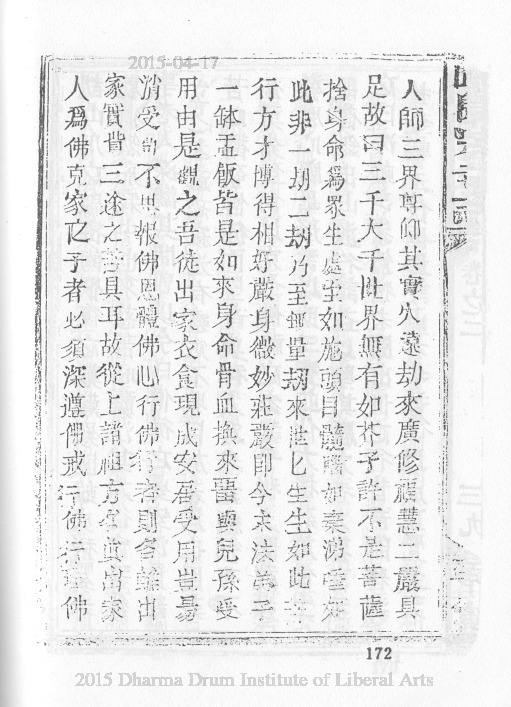 2015-04-17
人師三界尊仰其實穴遠劫來廣修福慧二嚴具
足故曰三千大千世界無有如芥子許不是菩薩
捨身命爲眾生處至如施頭目髓腦如棄涕唾如
此非一劫二劫乃至無量劫來世世生生如此
行方才博得相好嚴身微妙莊嚴即今末法弟子
一缽盂飯皆是如來身命骨血換來畱與兒孫受
用由是觀之吾徒出家衣食現成安居受用豈易
消受 不思報佛恩體佛心行佛行者則名雖出
家實皆三途之 具耳故從上諸祖方名真出家
人爲佛克家之子者必須深遵佛戒行佛行 佛
172
2015 Dharma Drum Institute of Liberal Arts